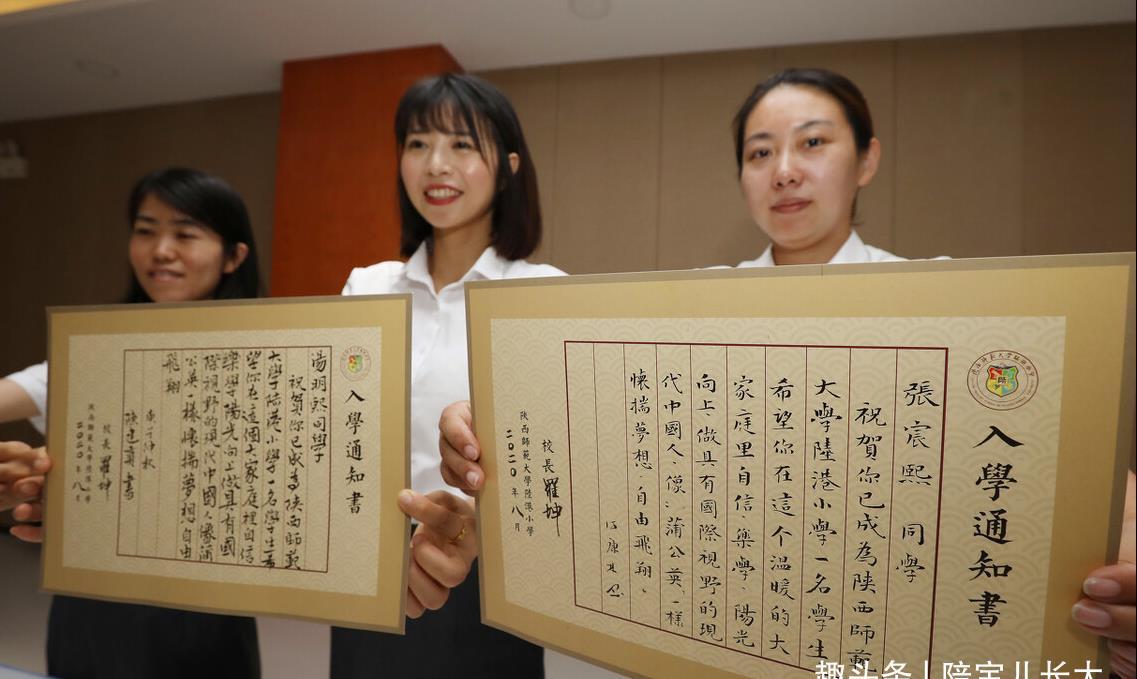 入學通知書
湯明熙同學
祝賀你已成爲陝西師範
大學陸港小學一名學生希
望你在這個大家庭裡自信
樂學陽光向上做具有國
際視野的現代中國人像蒲
公英一樣懷揣夢想自由
飛翔
校長 羅坤
陝西師範大學陸港小學
二〇二〇年八月
入學通知書
張宸熙 同學
祝賀你已成為陝西師範
大學陸港小學一名學生
希望你在這个溫暖的大
家庭里自信、樂學、陽光
向上、做具有國際視野的現
代中國人、像蒲公英一樣
懷揣夢想、自由飛翔。
校長 羅坤
陝西師範大學陸港小學
二〇二〇年八月
趣头条 | 陪宝儿长大